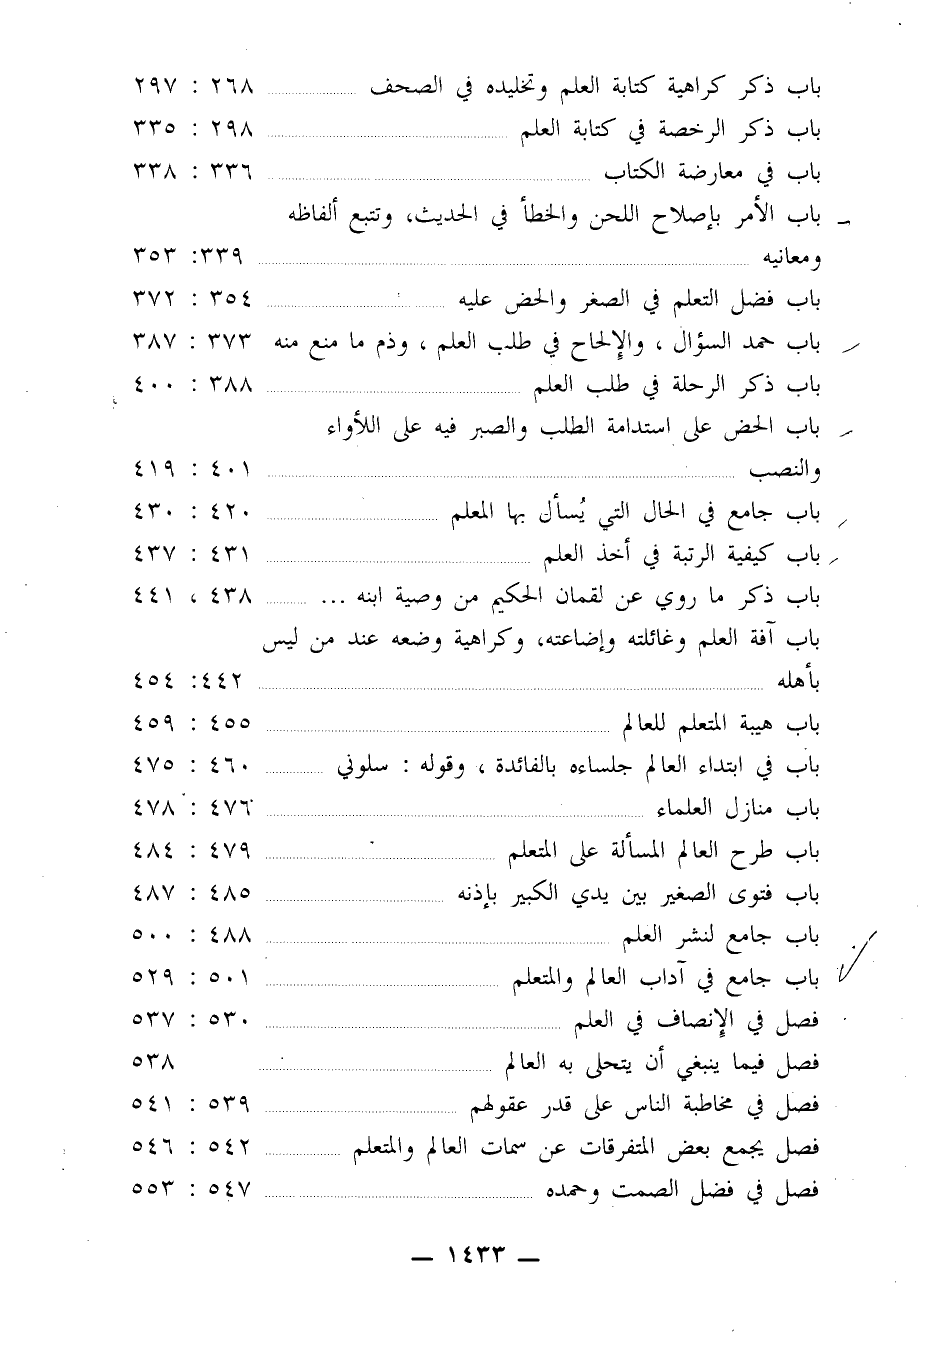 باب ذكر كراهية كتابة العلم وتخليده في الصحف ........ ٢٦٨ : ٢٩٧
باب ذكر الرخصة في كتابة العلم ........ ٢٩٨ : ٣٣٥
باب في معارضة الكتاب ........ ٣٣٦ : ٣٣٨
باب الأمر بإصلاح اللحن والخطأ في الحديث، وتتبع ألفاظه
ومعانيه ........ ٣٣٩: ٣٥٣
باب فضل التعلم في الصغر والحض عليه ........ ٣٥٤ : ٣٧٢
باب حمد السؤال ، والإلحاح في طلب العلم ، وذم ما منع منه ٣٧٣ : ٣٨٧
باب ذكر الرحلة في طلب العلم ........ ٣٨٨ : ٤٠٠
باب الحض على استدامة الطلب والصبر فيه على اللأواء
والنصب ........ ٤٠١ : ٤١٩
باب جامع في الحال التي يُسأل بها المعلم ........ ٤٢٠ : ٤٣٠
باب كيفية الرتبة في أخذ العلم ........ ٤٣١ : ٤٣٧
باب ذكر ما روي عن لقمان الحكيم من وصية ابنه ... ........ ٤٣٨ ، ٤٤١
باب آفة العلم وغائلته وإضاعته، وكراهية وضعه عند من ليس
بأهله ........ ٤٤٢: ٤٥٤
باب هيبة المتعلم للعالم ........ ٤٥٥ : ٤٥٩
باب في ابتداء العالم جلساءه بالفائدة ، وقوله : سلوني ........ ٤٦٠ : ٤٧٥
باب منازل العلماء ........ ٤٧٦ : ٤٧٨
باب طرح العالم المسألة على المتعلم ........ ٤٧٩ : ٤٨٤
باب فتوى الصغير بين يدي الكبير بإذنه ........ ٤٨٥ : ٤٨٧
باب جامع لنشر العلم ........ ٤٨٨ : ٥٠٠
باب جامع في آداب العالم والمتعلم ........ ٥٠١ : ٥٢٩
فصل في الإنصاف في العلم ........ ٥٣٠ : ٥٣٧
فصل فيما ينبغي أن يتحلى به العالم ........ ٥٣٨
فصل في مخاطبة الناس على قدر عقولهم ........ ٥٣٩ : ٥٤١
فصل يجمع بعض المتفرقات عن سمات العالم والمتعلم ........ ٥٤٢ : ٥٤٦
فصل في فضل الصمت وحمده ........ ٥٤٧ : ٥٥٣
— ١٤٣٣ —